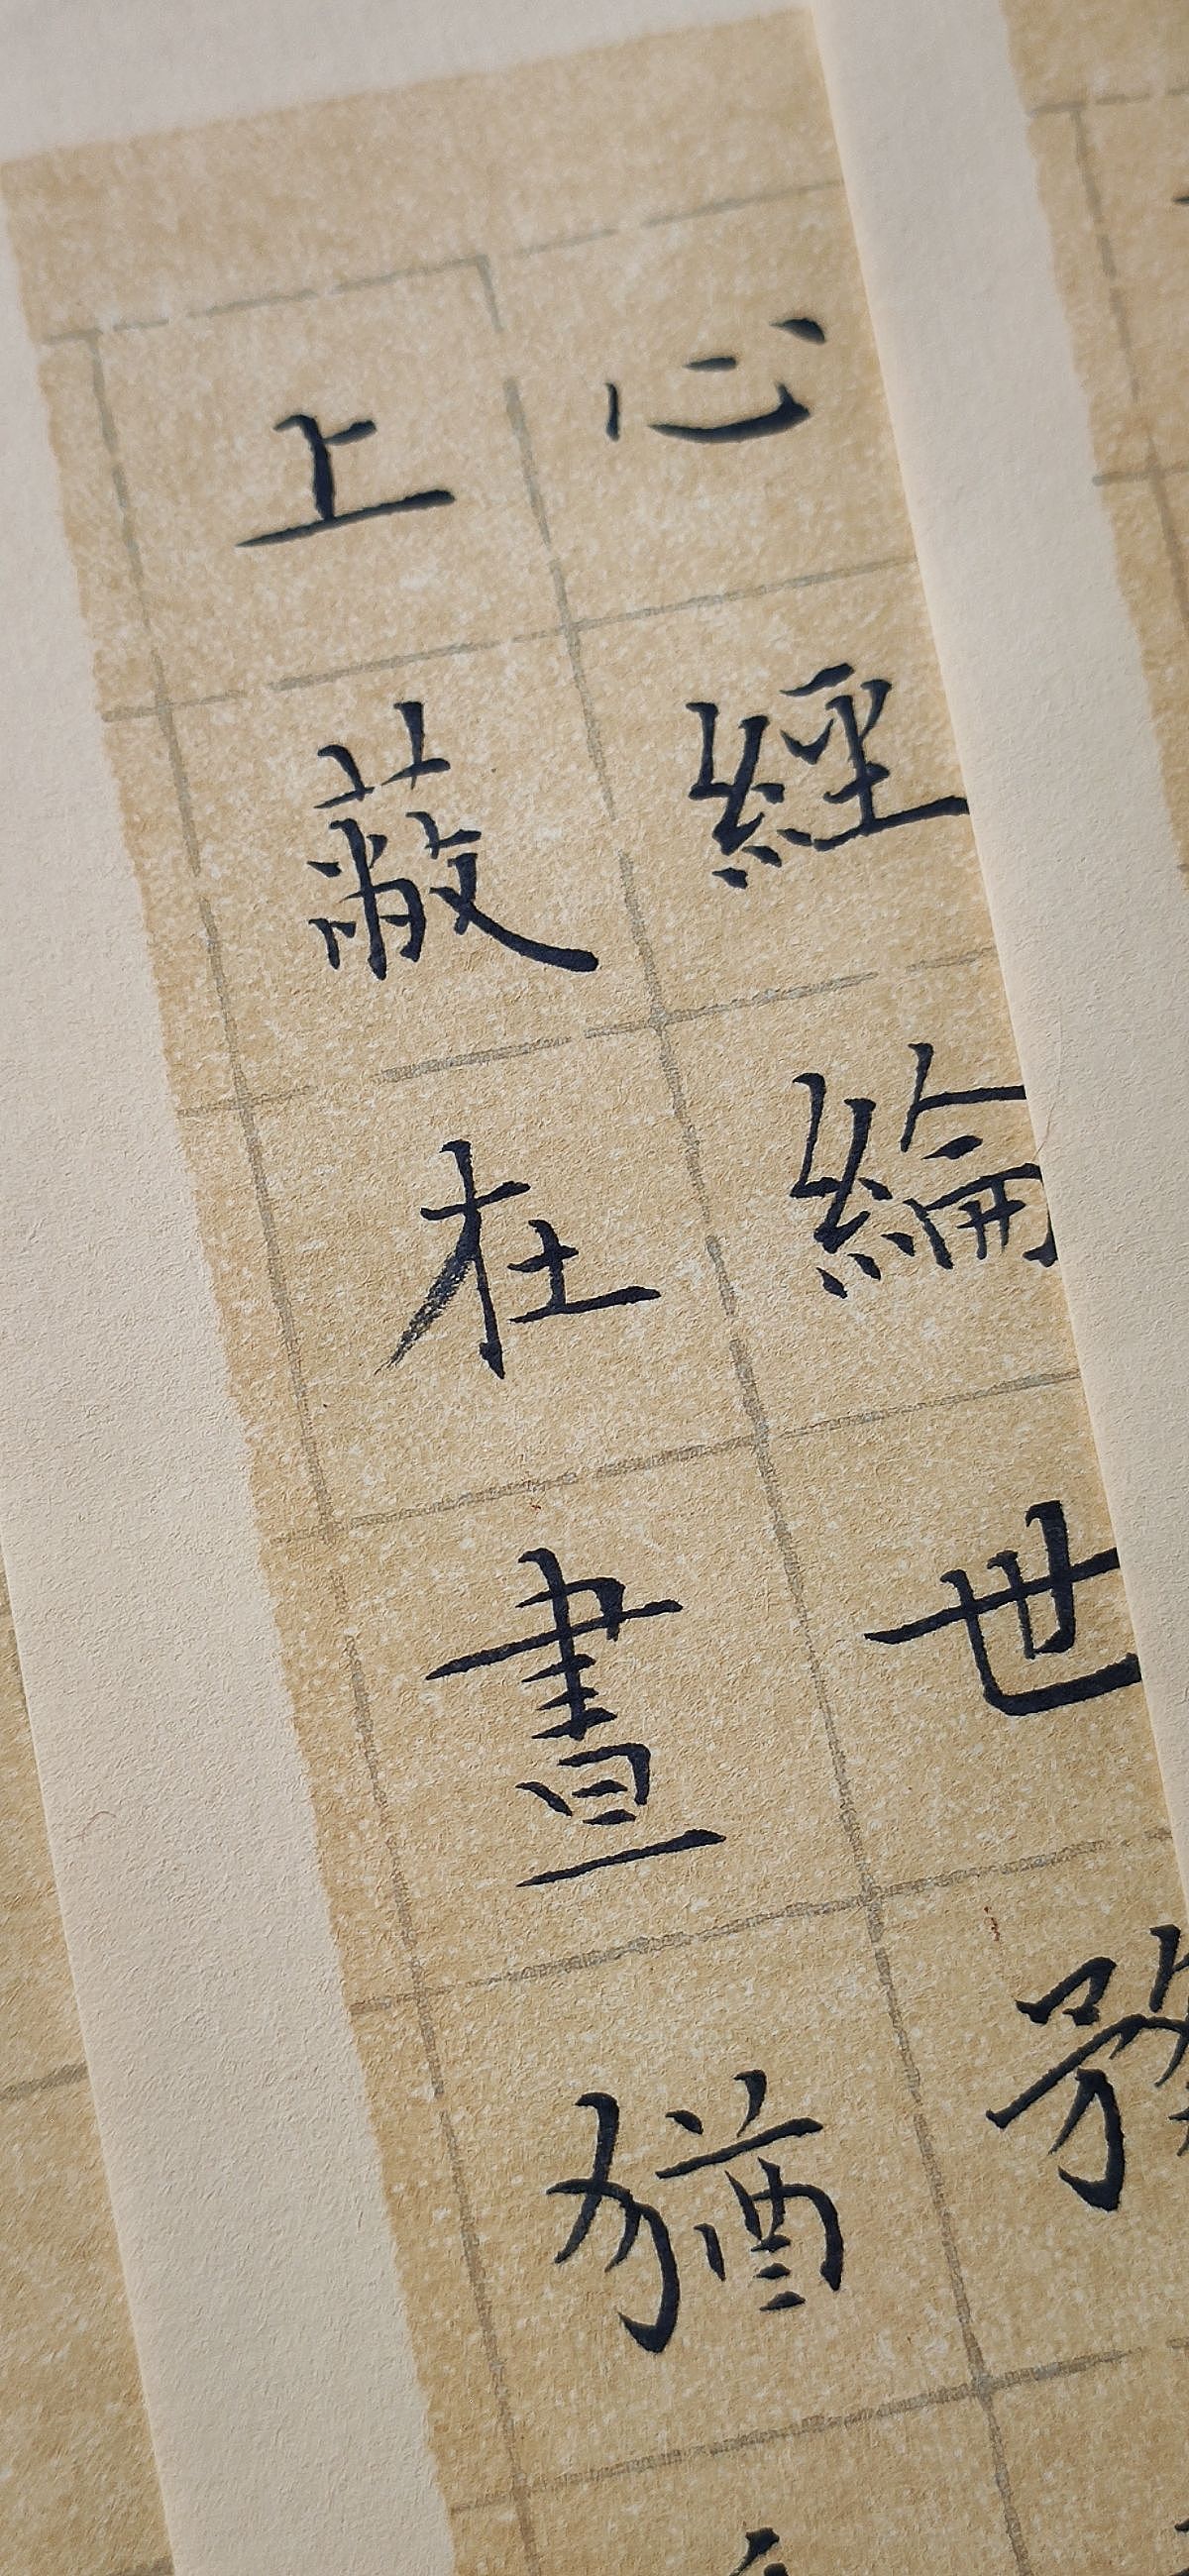 心經綸世務
上蔽在晝猶